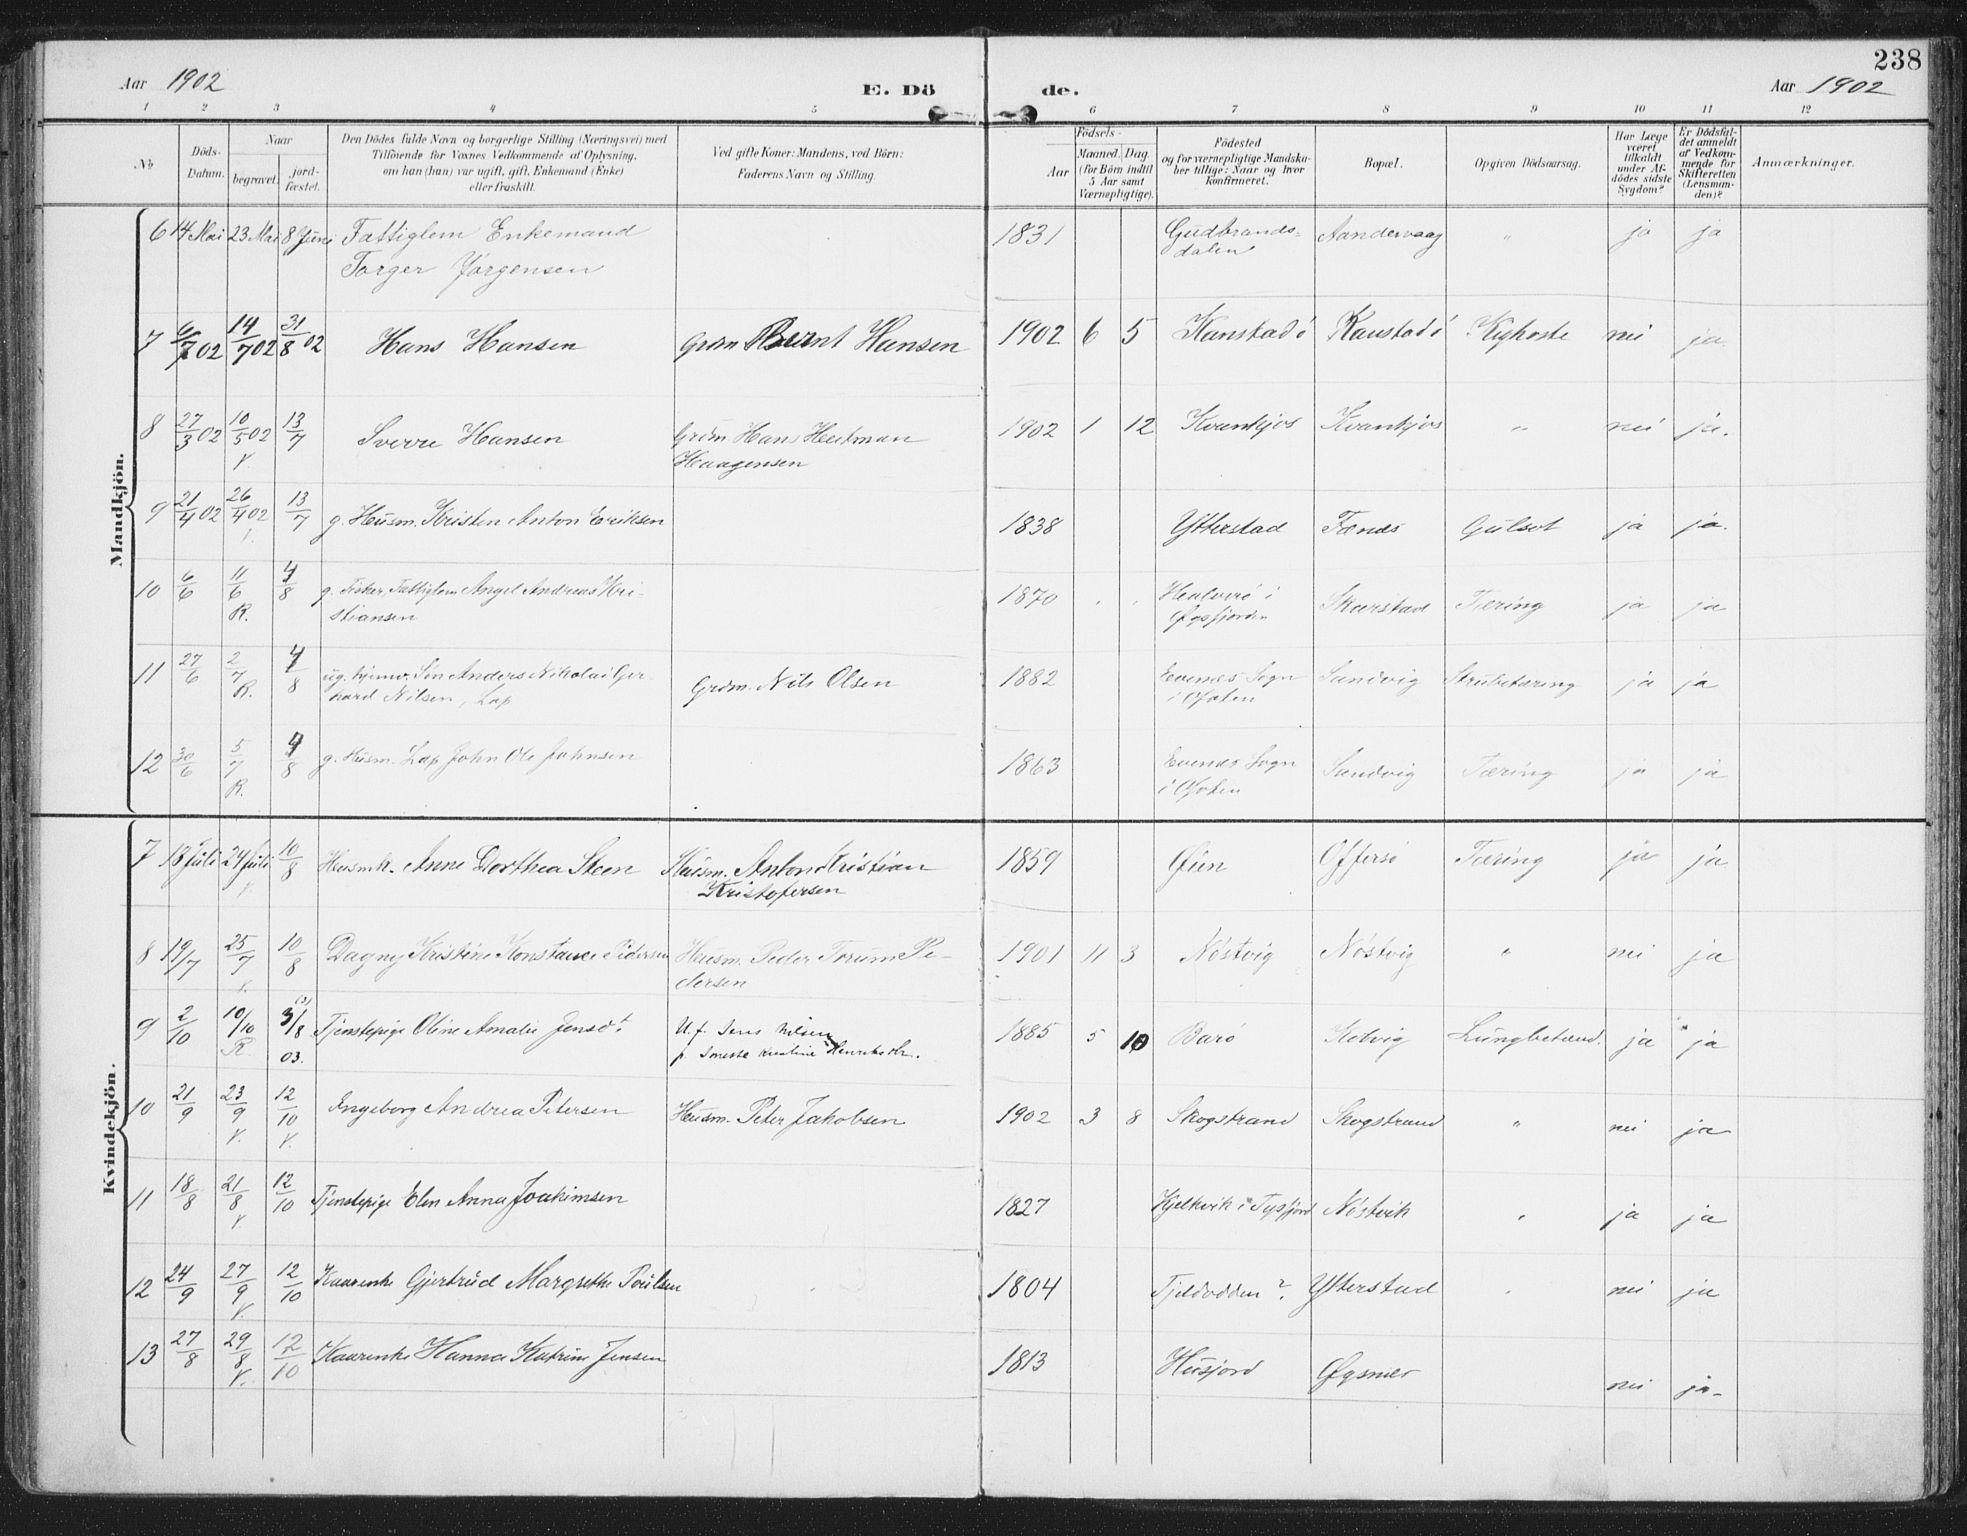 238
Aar 1902 E. Dö de. Aar 1902
1 2 3 4 5 6 7 8 9 10 11 12
No Döds-Datum. Naar begravet. jordfæstet. Den Dödes fulde Navn og borgerlige Stilling (Næringsvei) med Tilföiende for Voxnes Vedkommende af Oplysning, om han (hun) var ugift, gift, Enkemand (Enke) eller fraskilt. Ved gifte Koner: Mandens, ved Börn: Faderens Navn og Stilling. Födsels- Aar Maaned. Dag (for Börn indtil 5 Aar samt Værnepligtige). Födested og for værnepligtige Mandskaber tillige: Naar og hvor Konfirmeret. Bopæl. Opgiven Dödsaarsag. Har Læge været tilkaldt under Afdödes sidste Sygdom? Er Dödsfaldet anmeldt af Vedkommende for Skifteretten (Lensmanden)? Anmærkninger.
Mandkjön.
6 14 Mai 23 Mai 8 Juni Fattiglem Enkemand 1831 Gudbrands- Aandervaag " ja ja
Torger Jørgensen dalen
7 6/7 02 14/7 02 31/8 02 Hans Hansen Grdm Bernt Hansen 1902 6 5 Kanstadö Kanstadö Kighoste nei ja.
8 27/3 02 10/5 02 13/7 Sverre Hansen Grdm. Hans Heitman 1902 1 12 Kvankjos Kvankjos " nei ja.
V. Haagensen
9 21/4 02 26/4 02 13/7 g. Husm. Kristen Anton Eriksen 1838 Ytterstad Fænes Gulsot ja ja.
10 6/6 11/6 4/8 g. Fisker, Fattiglem Angel Andreas Kri- 1870 i Skarstad Tæring ja ja
R. stiansen
11 27/6 2/7 4/8 ug. hjemv. Søn Anders Nikolai Ger- Grdm. Nils Olsen 1882 Evenes Sogn Sandvig Strubetæring ja ja
R. hard Nilsen, Lap i Ofoten
12 30/6 5/7 4/8 g. Husm. Lap John Ole Johnsen 1863 Evenes Sogn Sandvig Tæring ja ja
R. i Ofoten
Kvindekjön.
7 18 Juli 24 Juli 10/8 Husmk. Anne Dorthea Steen Husm. Anton Kristian 1859 Øien Offersö Tæring ja ja
V. Kristofersen
8 19/7 25/7 10/8 Dagny Kristine Konstance Pedersen Husm. Peder Torum Pe- 1901 11 3 Nöstvig Nöstvig " nei ja
V. dersen
9 2/10 10/10 3/8 Tjenstepige Oline Amalie Jensdt. U.f. Jens Nilsen 1885 5 10 Barö Kolvig Lungbetænd. ja ja
R. 03. Henriksdtr.
10 21/9 23/9 12/10 Ingeborg Andrea Petersen Husm. Peter Jakobsen 1902 3 8 Skogstrand Skogstrand " nei ja
V. V.
11 18/8 21/8 12/10 Tjenstepige Elen Anna Joakimsen 1827 Kjelkvik i Tysfjord Nöstvik " ja ja
V.
12 24/9 27/9 12/10 Kaarenke Gjertrud Margrethe Poulsen 1804 Fjeldvodden? Ytterstad " nei ja
V.
13 27/8 29/8 12/10 Kaarenke Hanna Katrine Jensen 1813 Husjord nei ja.
V.